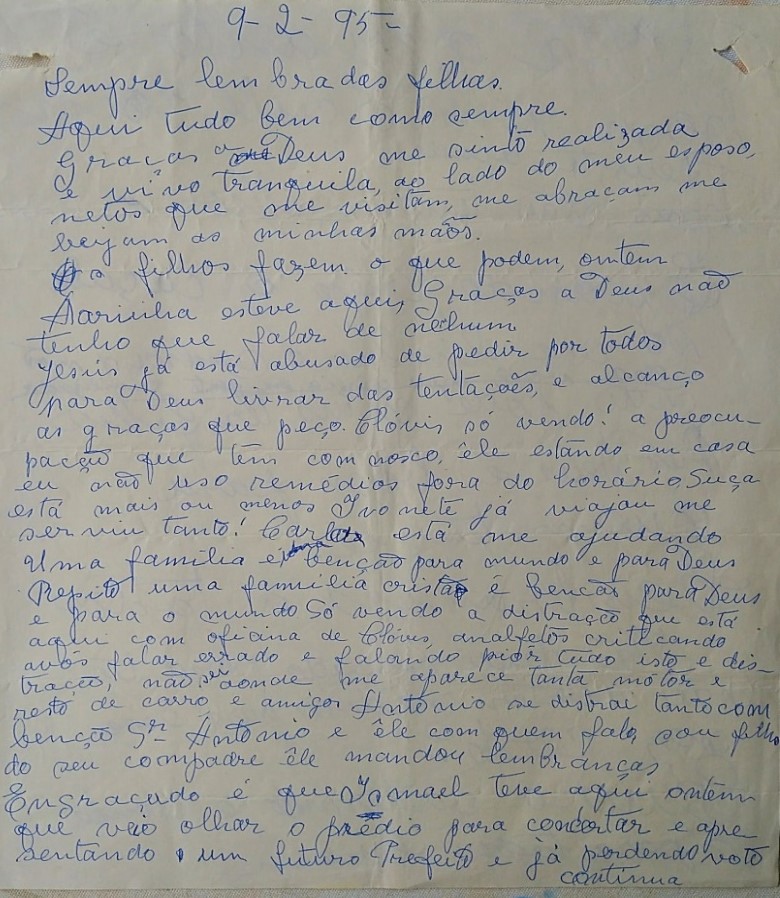 9-2-95-
Sempre lembradas filhas.
Aqui tudo bem como sempre.
Graças a Deus me sinto realizada
e vivo tranquila, ao lado do meu esposo,
netos que me visitam, me abraçam me
beijam as minhas mãos.
Os filhos fazem o que podem, ontem
Marinha esteve aqui, Graças a Deus não
tenho que falar de nechum
Jesus já está abusado de pedir por todos
para Deus livrar das tentações, e alcanço
as graças que peço. Clóvis só vendo! a preocu-
pacção que têm com nosco, êle estando em casa
eu não uso remédios fora do horário, Suça
está mais ou menos Ivonete já viajau me
serviu tanto! está me ajudando
Uma família é uma benção para mundo e para Deus
Repito uma família cristã é bencão para Deus
e para o mundo Só vendo a distração que está
aqui com oficina de Clóvis, analfetos critecando
avós falar errado e falando pior tudo isto e dis-
tração, não sei aonde me aparece tanta motor e
resto de carro e amigos Antônio se distrai tanto com
benção Sr. Antonio e êle com quem fala, sou filho
do seu compadre êle mandou lembranças,
Engraçado é que Ismael teve aqui ontem
que veio olhar o prédio para concertar e apre
sentando um futuro Prefeito e já perdendo voto
continua